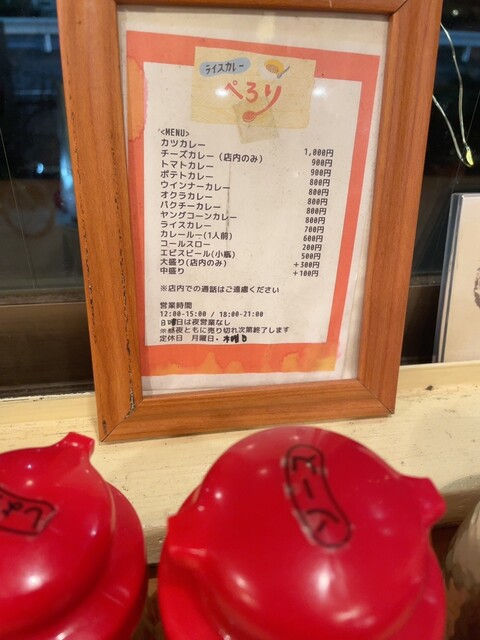 ライスカレー
ぺろり
<MENU>
カツカレー 1,000円
チーズカレー(店内のみ) 900円
トマトカレー 900円
ポテトカレー 800円
ウインナーカレー 800円
オクラカレー 800円
パクチーカレー 800円
ヤングコーンカレー 800円
ライスカレー 700円
カレールー(1人前) 600円
コールスロー 200円
エビスビール(小瓶) 500円
大盛り(店内のみ) +300円
中盛り +100円
※店内での通話はご遠慮ください
営業時間
12:00-15:00 / 18:00-21:00
日曜日は夜営業なし
※昼夜ともに売り切れ次第終了します
定休日 月曜日・木曜日